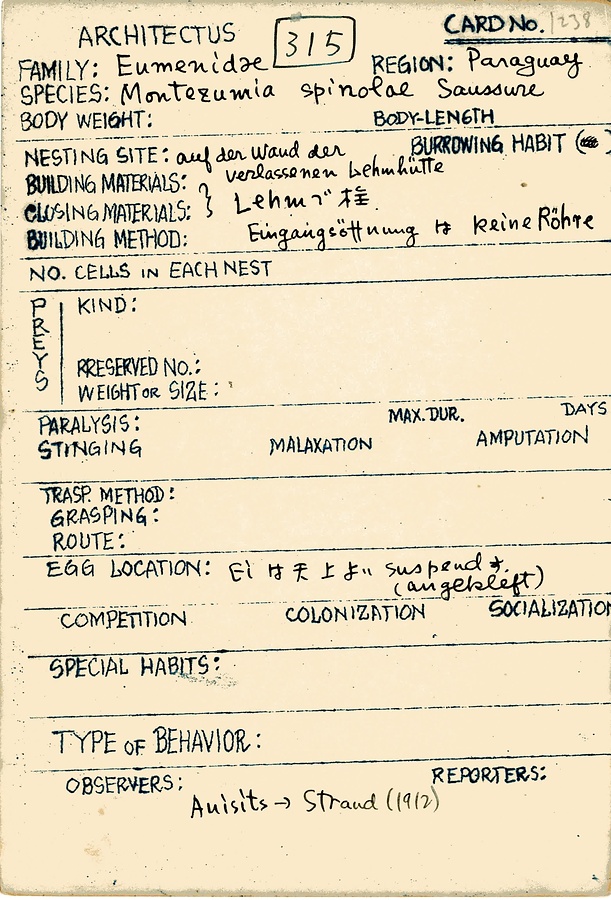 ARCHITECTUS 315 CARD No. 1238
FAMILY: Eumenidae REGION: Paraguay
SPECIES: Montezumia spinolae Saussure
BODY WEIGHT: BODY-LENGTH
NESTING SITE: auf der Wand der verlassenen Lehmhütte BURROWING HABIT (
BUILDING MATERIALS:
CLOSING MATERIALS: } Lehmで
BUILDING METHOD: Eingangsöffnung は keine Röhre
NO. CELLS IN EACH NEST
PREYS
KIND:
RRESERVED NO.:
WEIGHT OR SIZE:
PARALYSIS: MAX. DUR. DAYS
STINGING MALAXATION AMPUTATION
TRASP. METHOD:
GRASPING:
ROUTE:
EGG LOCATION: Ei は天上より suspend す.
(angeklebt)
COMPETITION COLONIZATION SOCIALIZATION
SPECIAL HABITS:
TYPE OF BEHAVIOR:
OBSERVERS: REPORTERS:
Anisits → Strand (1912)